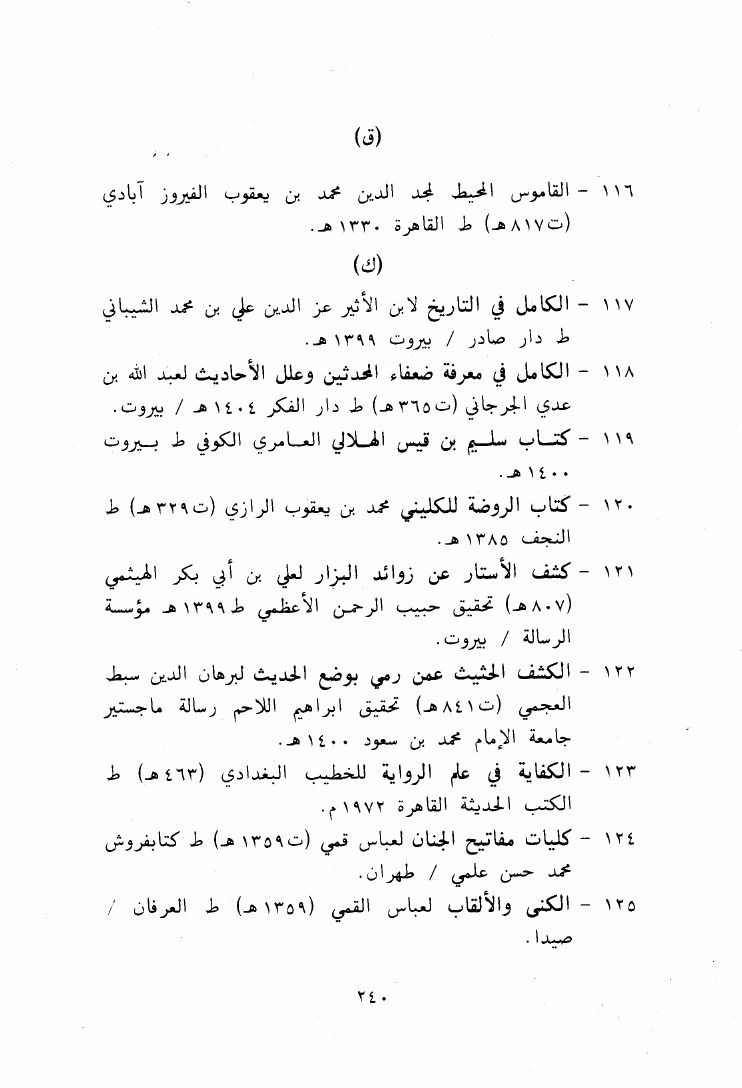 (ق)
١١٦ - القاموس المحيط لمجد الدين محمد بن يعقوب الفيروز آبادي
(ت٨١٧هـ) ط القاهرة ١٣٣٠هـ.
(ك)
١١٧ - الكامل في التاريخ لابن الأثير عز الدين علي بن محمد الشيباني
ط دار صادر / بيروت ١٣٩٩هـ.
١١٨ - الكامل في معرفة ضعفاء المحدثين وعلل الأحاديث لعبد الله بن
عدي الجرجاني (ت٣٦٥هـ) ط دار الفكر ١٤٠٤هـ / بيروت.
١١٩ - كتاب سليم بن قيس الهلالي العامري الكوفي ط بيروت
١٤٠٠هـ.
١٢٠ - كتاب الروضة للكليني محمد بن يعقوب الرازي (ت٣٢٩هـ) ط
النجف ١٣٨٥هـ.
١٢١ - كشف الأستار عن زوائد البزار لعلي بن أبي بكر الهيثمي
(٨٠٧هـ) تحقيق حبيب الرحمن الأعظمي ط١٣٩٩هـ مؤسسة
الرسالة / بيروت.
١٢٢ - الكشف الحثيث عمن رمي بوضع الحديث لبرهان الدين سبط
العجمي (ت٨٤١هـ) تحقيق ابراهيم اللاحم رسالة ماجستير
جامعة الإمام محمد بن سعود ١٤٠٠هـ.
١٢٣ - الكفاية في علم الرواية للخطيب البغدادي (٤٦٣هـ) ط
الكتب الحديثة القاهرة ١٩٧٢م.
١٢٤ - كليات مفاتيح الجنان لعباس قمي (ت١٣٥٩هـ) ط كتابفروش
محمد حسن علمي / طهران.
١٢٥ - الكنى والألقاب لعباس القمي (١٣٥٩هـ) ط العرفان /
صيدا.
٢٤٠